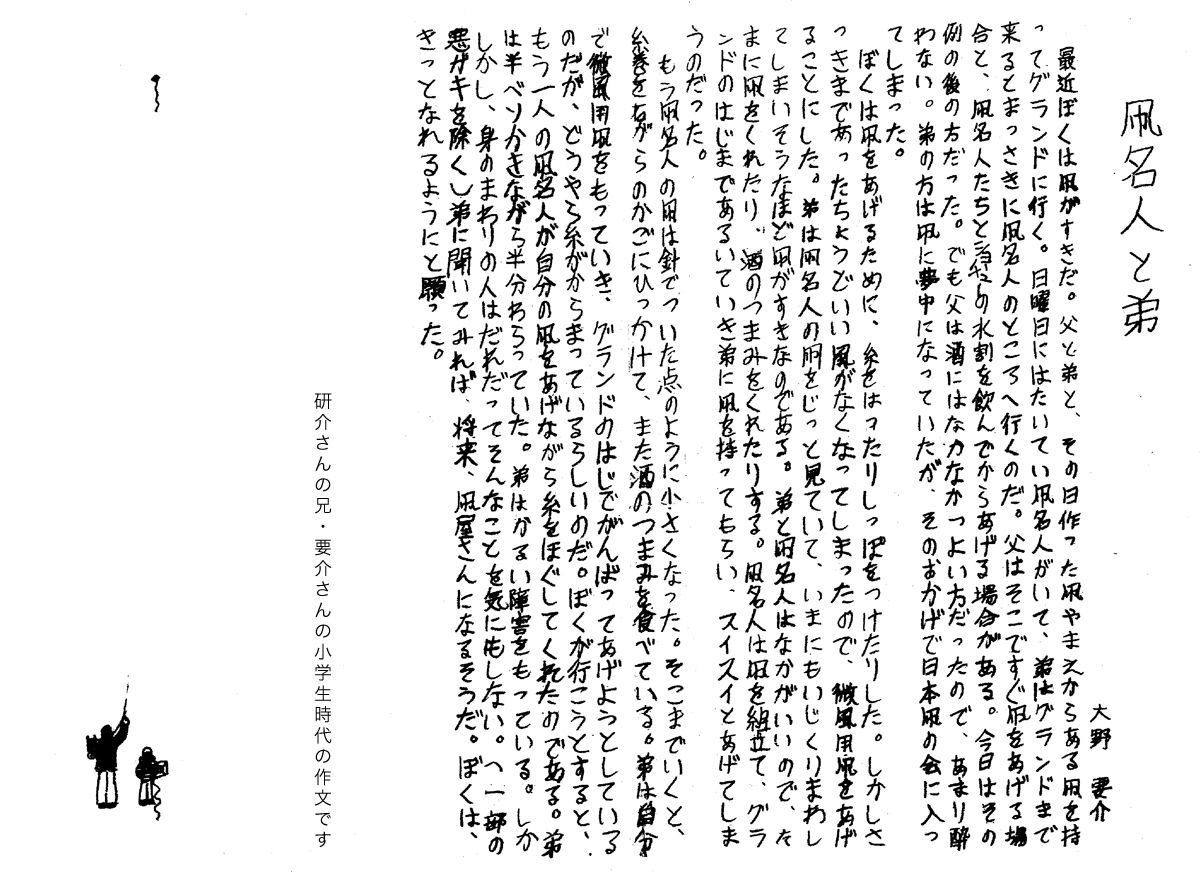 凧名人と弟
大野 要介
最近ぼくは凧がすきだ。父と弟と、その日作った凧やまえからある凧を持
ってグランドに行く。日曜日にはたいてい凧名人がいて、弟はグランドまで
来るとまっさきに凧名人のところへ行くのだ。父はそこですぐ凧をあげる場
合と、凧名人たちとショウチューの水割を飲んでからあげる場合がある。今日はその
例の後の方だった。でも父は酒にはなかなかつよい方だったので、あまり酔
わない。弟の方は凧に夢中になっていたが、そのおかげで日本凧の会に入っ
てしまった。
ぼくは凧をあげるために、糸をはったりしっぽをつけたりした。しかしさ
っきまであったちょうどいい風がなくなってしまったので、微風用凧をあげ
ることにした。弟は凧名人の凧をじっと見ていて、いまにもいじくりまわし
てしまいそうなほど凧がすきなのである。弟と凧名人はなかがいいので、た
まに凧をくれたり、酒のつまみをくれたりする。凧名人は凧を組立て、グラ
ンドのはじまであるいていき弟に凧を持ってもらい、スイスイとあげてしま
うのだった。
もう凧名人の凧は針でついた点のように小さくなった。そこまでいくと、
糸巻をながらのかごにひっかけて、また酒のつまみを食べている。弟は自分
で微風用凧をもっていき、グランドのはじでがんばってあげようとしている
のだが、どうやら糸がからまっているらしいのだ。ぼくが行こうとすると、
もう一人の凧名人が自分の凧をあげながら糸をほぐしてくれたのである。弟
は半ベソかきながら半分わらっていた。弟はかるい障害をもっている。しか
しかし、身のまわりの人はだれだってそんなことを気にもしない。(一部の
悪ガキを除く)弟に聞いてみれば、将来、凧屋さんになるそうだ。ぼくは、
きっとなれるようにと願った。
研介さんの兄・要介さんの小学生時代の作文です